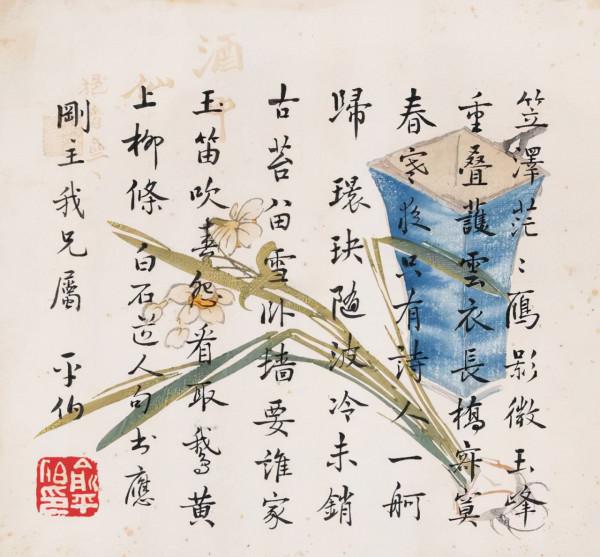 笠澤茫〻鴈影微玉峰
重叠護雲衣長橋寂寞
春寒夜只有詩人一舸
歸 環玦随波冷未銷
古苔畄雪臥墻要誰家
玉笛吹春怨看取鵞黄
上柳條 白石道人句书應
剛主我兄屬 平伯
俞平伯印
酒中
仙